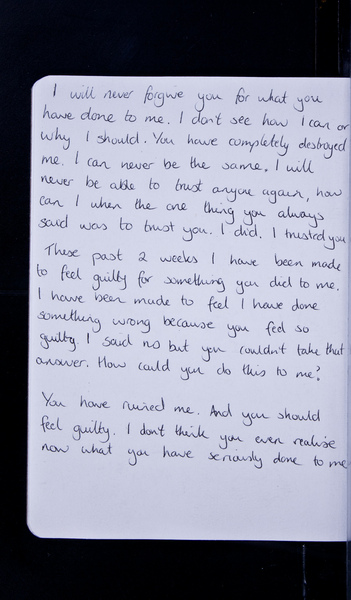 I will never forgive you for what you
have done to me. I don't see how I can or
why I should. You have completely destroyed
me. I can never be the same. I will
never be able to trust anyone again, how
can I when the one thing you always
said was to trust you. I did. I trusted you
These past 2 weeks I have been made
to feel guilty for something you did to me.
I have been made to feel I have done
something wrong because you feel so
guilty. I said no but you couldn't take that
answer. How could you do this to me?
You have ruined me. And you should
feel guilty. I don't think you even realise
now what you have seriously done to me